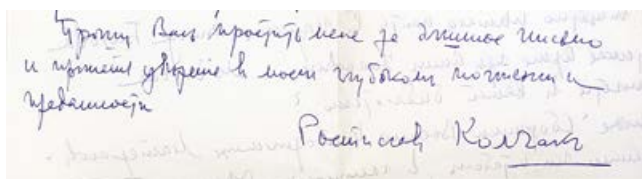 Прошу Вас простить меня за длинное письмо
и примите уверение в моем глубоком почтении и
преданности
Ростислав Колчак